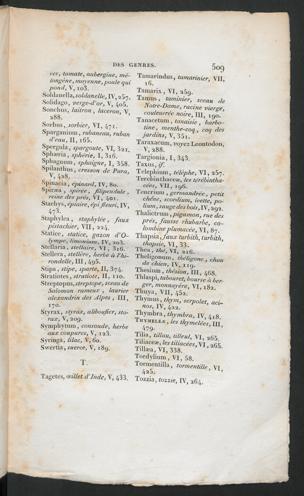 DES GENRES. 509
res, tomate, aubergine, mé-
longène, moyenne, poule qui
pond, V, 103.
Soldanella, soldanelle, IV, 257.
Solidago, verge-d'or, V, 405.
Sonchus, laitron, laceron, V,
288.
Sorbus, sorbier, VI, 471.
Sparganium, rubaneau, ruban
d'eau, II, 165.
Spergula, spargoute, VI, 321.
Sphæria, sphérie, I, 316.
Sphagnum, sphaigne, I, 358.
Spilanthus, cresson de Para,
V, 428.
Spinacia, épinard, IV, 80.
Spiræa, spirée, filipendule,
reine des prés, VI, 401.
Stachys, épiaire, épi fleuri, IV,
473.
Staphylea, staphylée, faux
pistachier, VII, 224.
Statice, statice, gazon d'O-
lympe, limonium, IV, 203.
Stellaria, stellaire, VI, 316.
Stellera, stellère, herbe à l'hi-
rondelle, III, 498.
Stipa, stipe, sparte, II, 374.
Stratiotes, stratiote, II, 110.
Streptopus, streptope, sceau de
Salomon rameux, laurier
alexandrin des Alpes, III,
170.
Styrax, styrax, aliboufier, sto-
rax, V, 209.
Symphytum, consoude, herbe
aux coupures, V, 123.
Syringa, lilac, V, 60.
Swertia, swerce, V, 189.
T.
Tagetes, œillet d'Inde, V, 433.
Tamarindus, tamarinier, VII,
16.
Tamarix, VI, 259.
Tamus, taminier, sceau de
Notre-Dame, racine vierge,
couleuvrée noire, III, 190.
Tanacetum, tanaisie, barbo-
tine, menthe-coq, coq des
jardins, V, 351.
Taraxacum, voyez Leontodon,
V, 288.
Targionia, I, 343.
Taxus, if.
Telephium, téléphe, VI, 257.
Terebinthaceæ, les térébintha-
cées, VII, 196.
Teucrium, germandrée, petit
chêne, scordium, ivette, po-
lium, sauge des bois, IV, 292.
Thalictrum, pigamon, rue des
prés, fausse rhubarbe, co-
lombine plumacée, VI, 87.
Thapsia, faux turbith, turbith,
thapsie, VI, 33.
Thea, thé, VI, 226.
Theligonum, théligone, chou
de chien, IV, 219.
Thesium, thésion, III, 468.
Thlaspi, tabouret, bourse à ber-
ger, monnoyère, VI, 182.
Thuya, VII, 452.
Thymus, thym, serpolet, aci-
nos, IV, 422.
Thymbra, thymbra, IV, 418.
Thymeleæ, les thymelées, III,
479.
Tilia, tillau, tilleul, VI, 265.
Tiliaceæ, les tiliacées, VI, 265.
Tillæa, VI, 338.
Tordylium, VI, 58.
Tormentilla, tormentille, VI,
425.
Tozzia, tozzie, IV, 264.